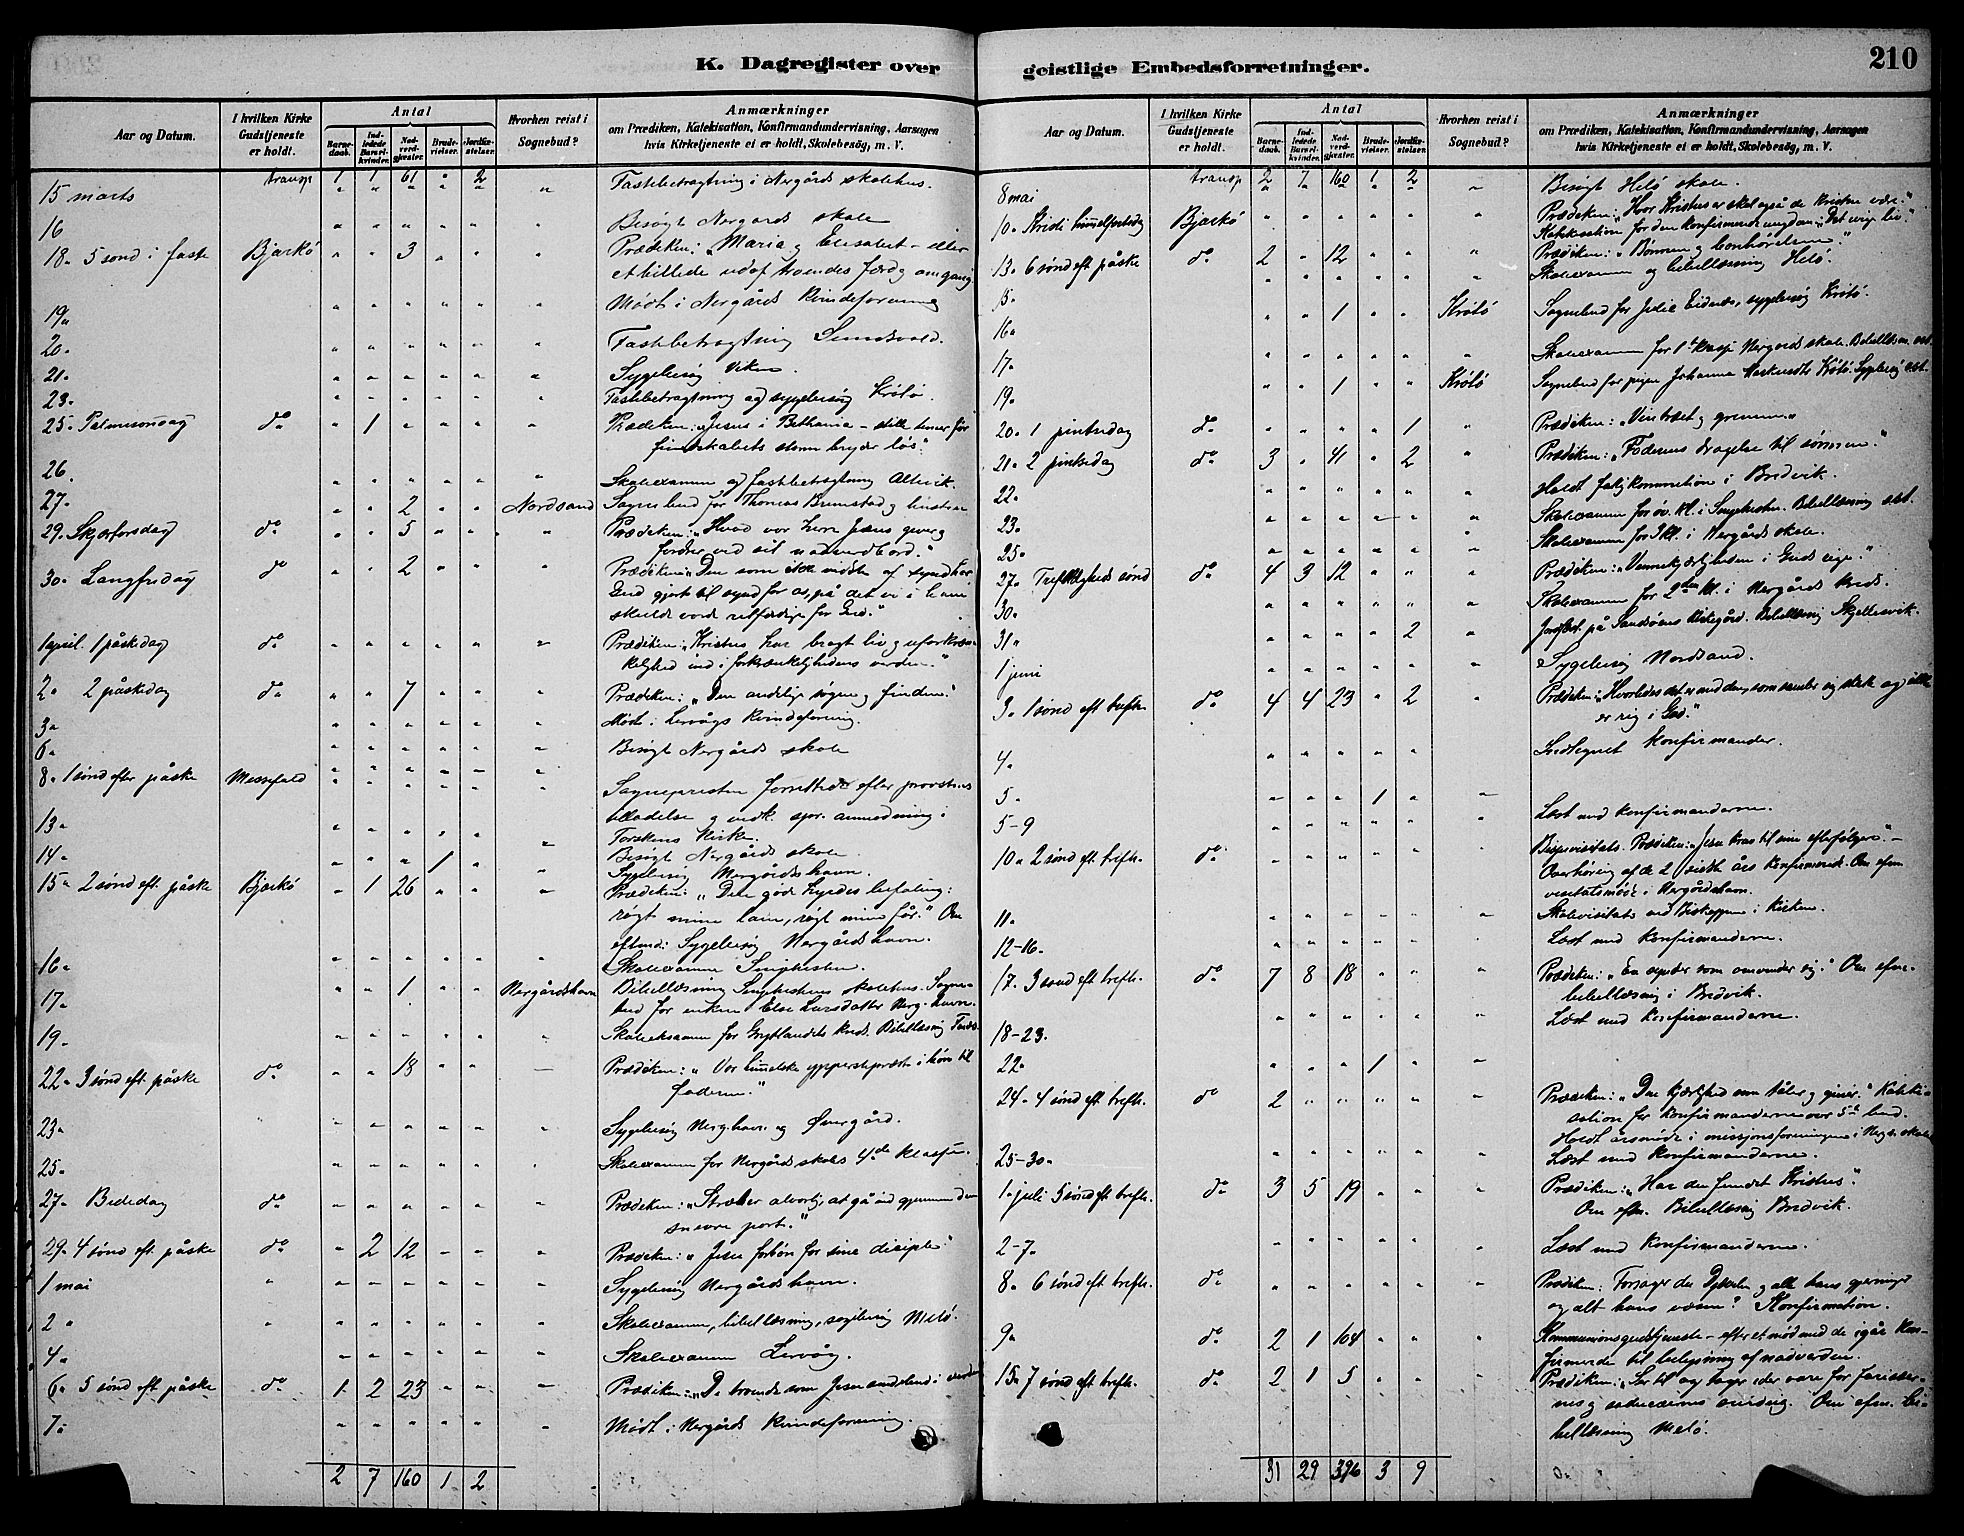 K. Dagregister over
Aar og Datum.
I hvilken Kirke Gudstjeneste er holdt.
Antal
Barnedaab.
Indledede Barselkvinder.
Nadverdgjester.
Brudevielser.
Jordfæstelser.
Hvorhen reist i Sognebud?
Anmærkninger
om Prædiken, Katekisation, Konfirmandundervisning, Aarsagen
hvis Kirketjeneste ei er holdt, Skolebesög, m. V.
transp 1 1 61 " 2
15 marts Fastebetragtning i Nergårds skolehus.
16 Besøgt Nergårds skole
18" 5 sönd i faste Bjarkö " " 3 Prædiken: "Maria og Elisabet – eller
et billede udaf troendes færd og omgang
19" Mödt i Nergårds kvindeforening
20" Fastebetragtning Sundsvold.
21" Sygebesög Viken
23" Fastebetragtning og sygebesög Krötö.
25" Palmesöndag do " 1 Prædiken: "Jesus i Bethania – stille timer før
fiendskabets storm bryder lös."
26. Skolexamen og fastebetragtning Altevik.
27" " " 2 Nordsand Sognebud for Thomas hustru
29" Skjærtorsdag do " " 5 Prædiken: "Hvad vor herre Jesus giver og
fordrer ved sit nadverdbord."
30" Langfredag do " " 2 Prædiken: "Den som ikke vidste af synd har
Gud gjort til synd for os, på det vi i ham
skulde vorde retfærdige for Gud."
1 april. 1 påskedag do Prædiken: "Kristus har bragt liv og uforkræn-
kelighed ind i forkrænkelighedens verden."
2" 2 påskedag do " " 7 Prædiken: "Den åndelige søgen og finden."
3" Mödt i Lervågs kvindeforening.
6" Besøgt Nergårds skole
8" 1 sönd efter påske Messefald Sognepresten forrettede efter provstens
tilladelse og indk. spr. anmodning i
13" Torskens kirke.
14" " " " 1 Besøgt Nergårds skole
Sygebesög Nergårdshavn.
15" 2 sönd eft. påske Bjarkö " 1 26 Prædiken: "Den gode hyrdes befaling:
røgt mine lam, røgt mine får." Om
efterm: Sygebesög Nergårdshavn.
16" Skolexamen
17" " " 1 Nergårdshavn Bibellæsning skolehus. Sogne-
bud for enken Else Larsdatter Nerg.havn.
19" Skoleeksamen for Grytlandets kreds. Bibellæsning
22" 3 sönd eft. påske do " " 18 Prædiken: "Vor himmelske ypperstepræst i bøn til
faderen."
23" Sygebesög Nerg.havn og Övergård.
25" Skolexamen for Nergårds skoles 4de klasse.
27" Bededag do Prædiken: "Stræber alvorlig at gå ind gjennem den
snevre port."
29" 4 sönd eft. påske do " 2 12 Prædiken: "Jesu forbön for sine disciple"
1 mai Sygebesög Nergårdshavn.
2" Skolexamen, bibellæsning, sygebesög Melö.
4" Skolexamen Lervåg.
6" 5 sönd eft. påske do 1 2 23 Prædiken: "De troende som Jesu sendebud i verden
7" Mödt i Nergårds kvindeforening.
2 7 160 1 2
geistlige Embedsforretninger.
210
Aar og Datum.
I hvilken Kirke Gudstjeneste er holdt.
Antal
Barnedaab.
Indledede Barselkvinder.
Nadverdgjester.
Brudevielser.
Jordfæstelser.
Hvorhen reist i Sognebud?
Anmærkninger
om Prædiken, Katekisation, Konfirmandundervisning, Aarsagen
hvis Kirketjeneste ei er holdt, Skolebesög, m. V.
transp 2 7 160 1 2
8 mai Besögt Helö skole.
10" Kristi himmelfartsdag Bjarkö Prædiken: "Hvor Kristus er skal også de kristne være."
Katekisation for den konfirmerede ungdom "Det evige liv."
13" 6 sönd eft påske do 2 " 12 Prædiken: "Bønnen og bønhørelsen."
15" Skolexamen og bibellæsning Helö.
16" " " 1 Krötö Sognebud for Julie Eidnes, sygebesög Krötö.
17" Skolexamen for 1ste klasse Nergårds skole. Bibellæsn. sst.
19" " " 1 Krötö Sognebud for pigen Johanna Krötö. Sygebesög sst.
20" 1 pintsedag do " " " " 1 Prædiken: "Vintræet og grenene"
21" 2 pintsedag do 3 " 41 " 2 Prædiken: "Faderens dragelse til sønnen."
22" Holdt kommission i Bredvik.
23" Skolexamen for öv. kl. i Bibellæsning sst.
25" Skolexamen for 3 kl. i Nergårds skole.
27" Trefoldigheds sönd do 4 3 12 Prædiken: "Vennekjærligheden i Guds rige."
30" Skolexamen for 2den kl. i Nergårds kreds.
31" " " " " 2 Jordfæst. på Sandsöens kirkegård. Bibellæsning Skjellesvik.
1 juni Sygebesög Nordsand.
3" 1 sönd eft trefh. do 4 4 23 " 2 Prædiken: "Hvorledes det er med den, som samler sig skatte og ikke
er rig i Gud."
4" Indtegnet konfirmander.
5" " " " 1
5-9 Læst med konfirmanderne.
10" 2 sönd eft trefh. do Bispevisitats. Prædiken: "Jesu krav til sine efterfølgere" –
Overhöring af de 2 sidste års konfirmerede. Om efm.
visitatsmöde i Nergårdshavn.
11" Skolevisitats ved Biskoppen i kirken.
12-16" Læst med konfirmanderne.
17" 3 sönd eft trefh. do 7 8 18 Prædiken: "En synder som omvender sig." Om efm.
bibellæsning i Bredvik.
18-23" Læst med konfirmanderne.
22" " " " 1
24" 4 sönd eft trefh. do 2 Prædiken: "Den kjærlighed som tåler og giver." Kateki-
sation for konfirmanderne over 5te bud.
Holdt årsmöde i missjonsforeningen i Nergs. skole
25-30" Læst med konfirmanderne.
1 juli 5 sönd eft trefh. do 3 5 19 Prædiken: "Har du fundet Kristus".
Om efm. Bibellæsning Bredvik.
2-7" Læst med konfirmanderne.
8" 6 sönd eft trefh. do Prædiken: Forsager du Djævelen og alle hans gjerninger
og alt hans væsen? Konfirmation.
9" do 2 1 104 Kommunionsgudstjeneste – efter et möde med de igår kon-
firmerede til belysning af nadverden.
15" 7 sönd eft trefh. do 2 1 5 Prædiken: "Ser til og tager eder vare for farisæer-
nes og saducæernes surdeig. Om efm. bi-
bellæsning Melö.
31 29 396 3 9